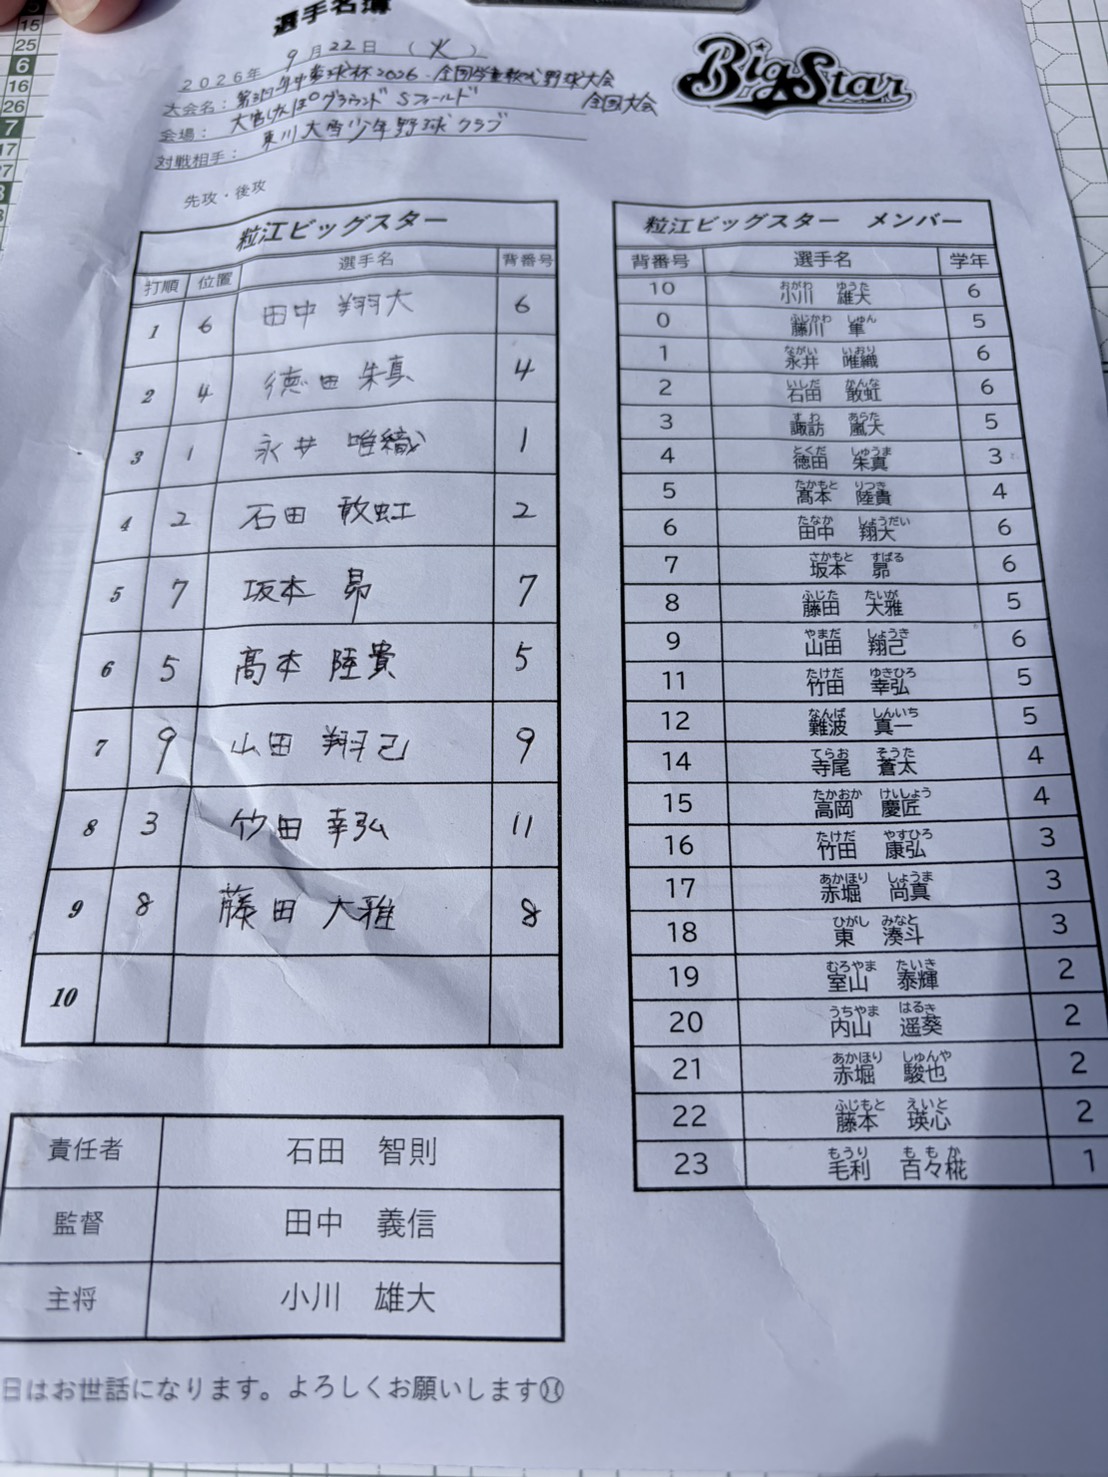 選手名簿
BigStar
2026年 9月22日 (火)
大会名:
全国大会
会場: 大宮けんぽグラウンド Sフィールド
対戦相手: 東川大雪少年野球クラブ
先攻・後攻
粒江ビッグスター
打順 位置 選手名 背番号
1 6 田中 翔大 6
2 4 徳田 朱真 4
3 1 永井 唯織 1
4 2 石田 敢虹 2
5 7 坂本 昴 7
6 5 髙本 陸貴 5
7 9 山田 翔己 9
8 3 竹田 幸弘 11
9 8 藤田 大雅 8
10
責任者 石田 智則
監督 田中 義信
主将 小川 雄大
日はお世話になります。よろしくお願いします
粒江ビッグスター メンバー
背番号 選手名 学年
おがわ ゆうた
10 小川 雄大 6
ふじかわ しゅん
0 藤川 隼 5
ながい いおり
1 永井 唯織 6
いしだ かんな
2 石田 敢虹 6
すわ あらた
3 諏訪 嵐大 5
とくだ しゅうま
4 徳田 朱真 3
たかもと りつき
5 髙本 陸貴 4
たなか しょうだい
6 田中 翔大 6
さかもと すばる
7 坂本 昴 6
ふじた たいが
8 藤田 大雅 5
やまだ しょうき
9 山田 翔己 6
たけだ ゆきひろ
11 竹田 幸弘 5
なんば しんいち
12 難波 真一 5
てらお そうた
14 寺尾 蒼太 4
たかおか けいしょう
15 高岡 慶匠 4
たけだ やすひろ
16 竹田 康弘 3
あかほり しょうま
17 赤堀 尚真 3
ひがし みなと
18 東 湊斗 3
むろやま たいき
19 室山 泰輝 2
うちやま はるき
20 内山 遥葵 2
あかほり しゅんや
21 赤堀 駿也 2
ふじもと えいと
22 藤本 瑛心 2
もうり ももか
23 毛利 百々椛 1